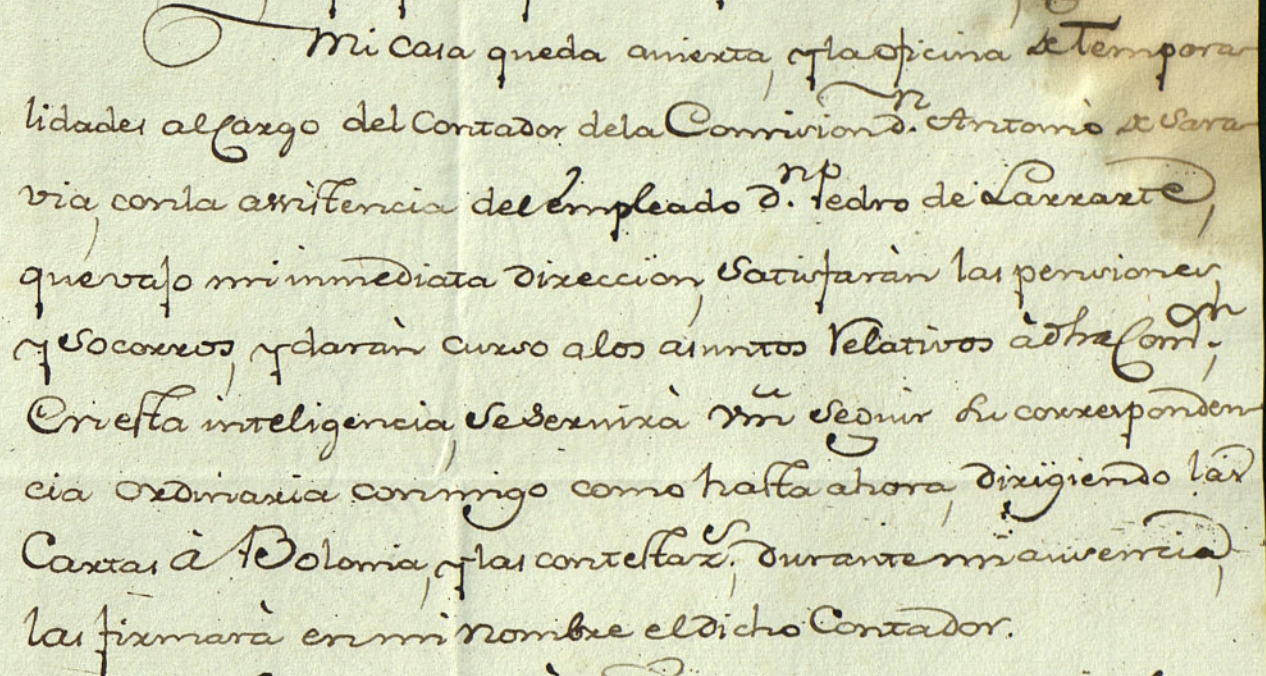 Mi Casa queda avierta, y la oficina de Tempora-
lidades al Cargo del Contador de la Comision d.n Antonio de Sara-
via, con la assistencia del empleado d.n Pedro de Larrarte,
que vajo mi inmediata direccion, satisfaràn las pensiones,
y socorros, y daràn curso a los asuntos relativos à dha Com.on;
En esta inteligencia, se servirà Vm seguir su corresponden-
cia ordinaria conmigo como hasta ahora, dirigiendo las
Cartas à Bolonia, y las contestaz.s, durante mi ausencia,
las firmarà en mi nombre el dicho Contador.